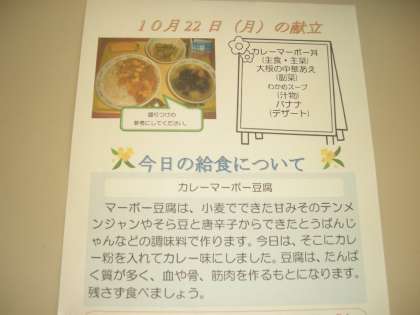 10月22日（月）の献立
カレーマーボー丼
（主食・主菜）
大根の中華あえ
（副菜）
わかめスープ
（汁物）
バナナ
（デザート）
盛りつけの
参考にしてください。
今日の給食について
カレーマーボー豆腐
マーボー豆腐は、小麦でできた甘みそのテンメ
ンジャンやそら豆と唐辛子からできたとうばんじ
ゃんなどの調味料で作ります。今日は、そこにカレ
ー粉を入れてカレー味にしました。豆腐は、たんぱ
く質が多く、血や骨、筋肉を作るもとになります。
残さず食べましょう。